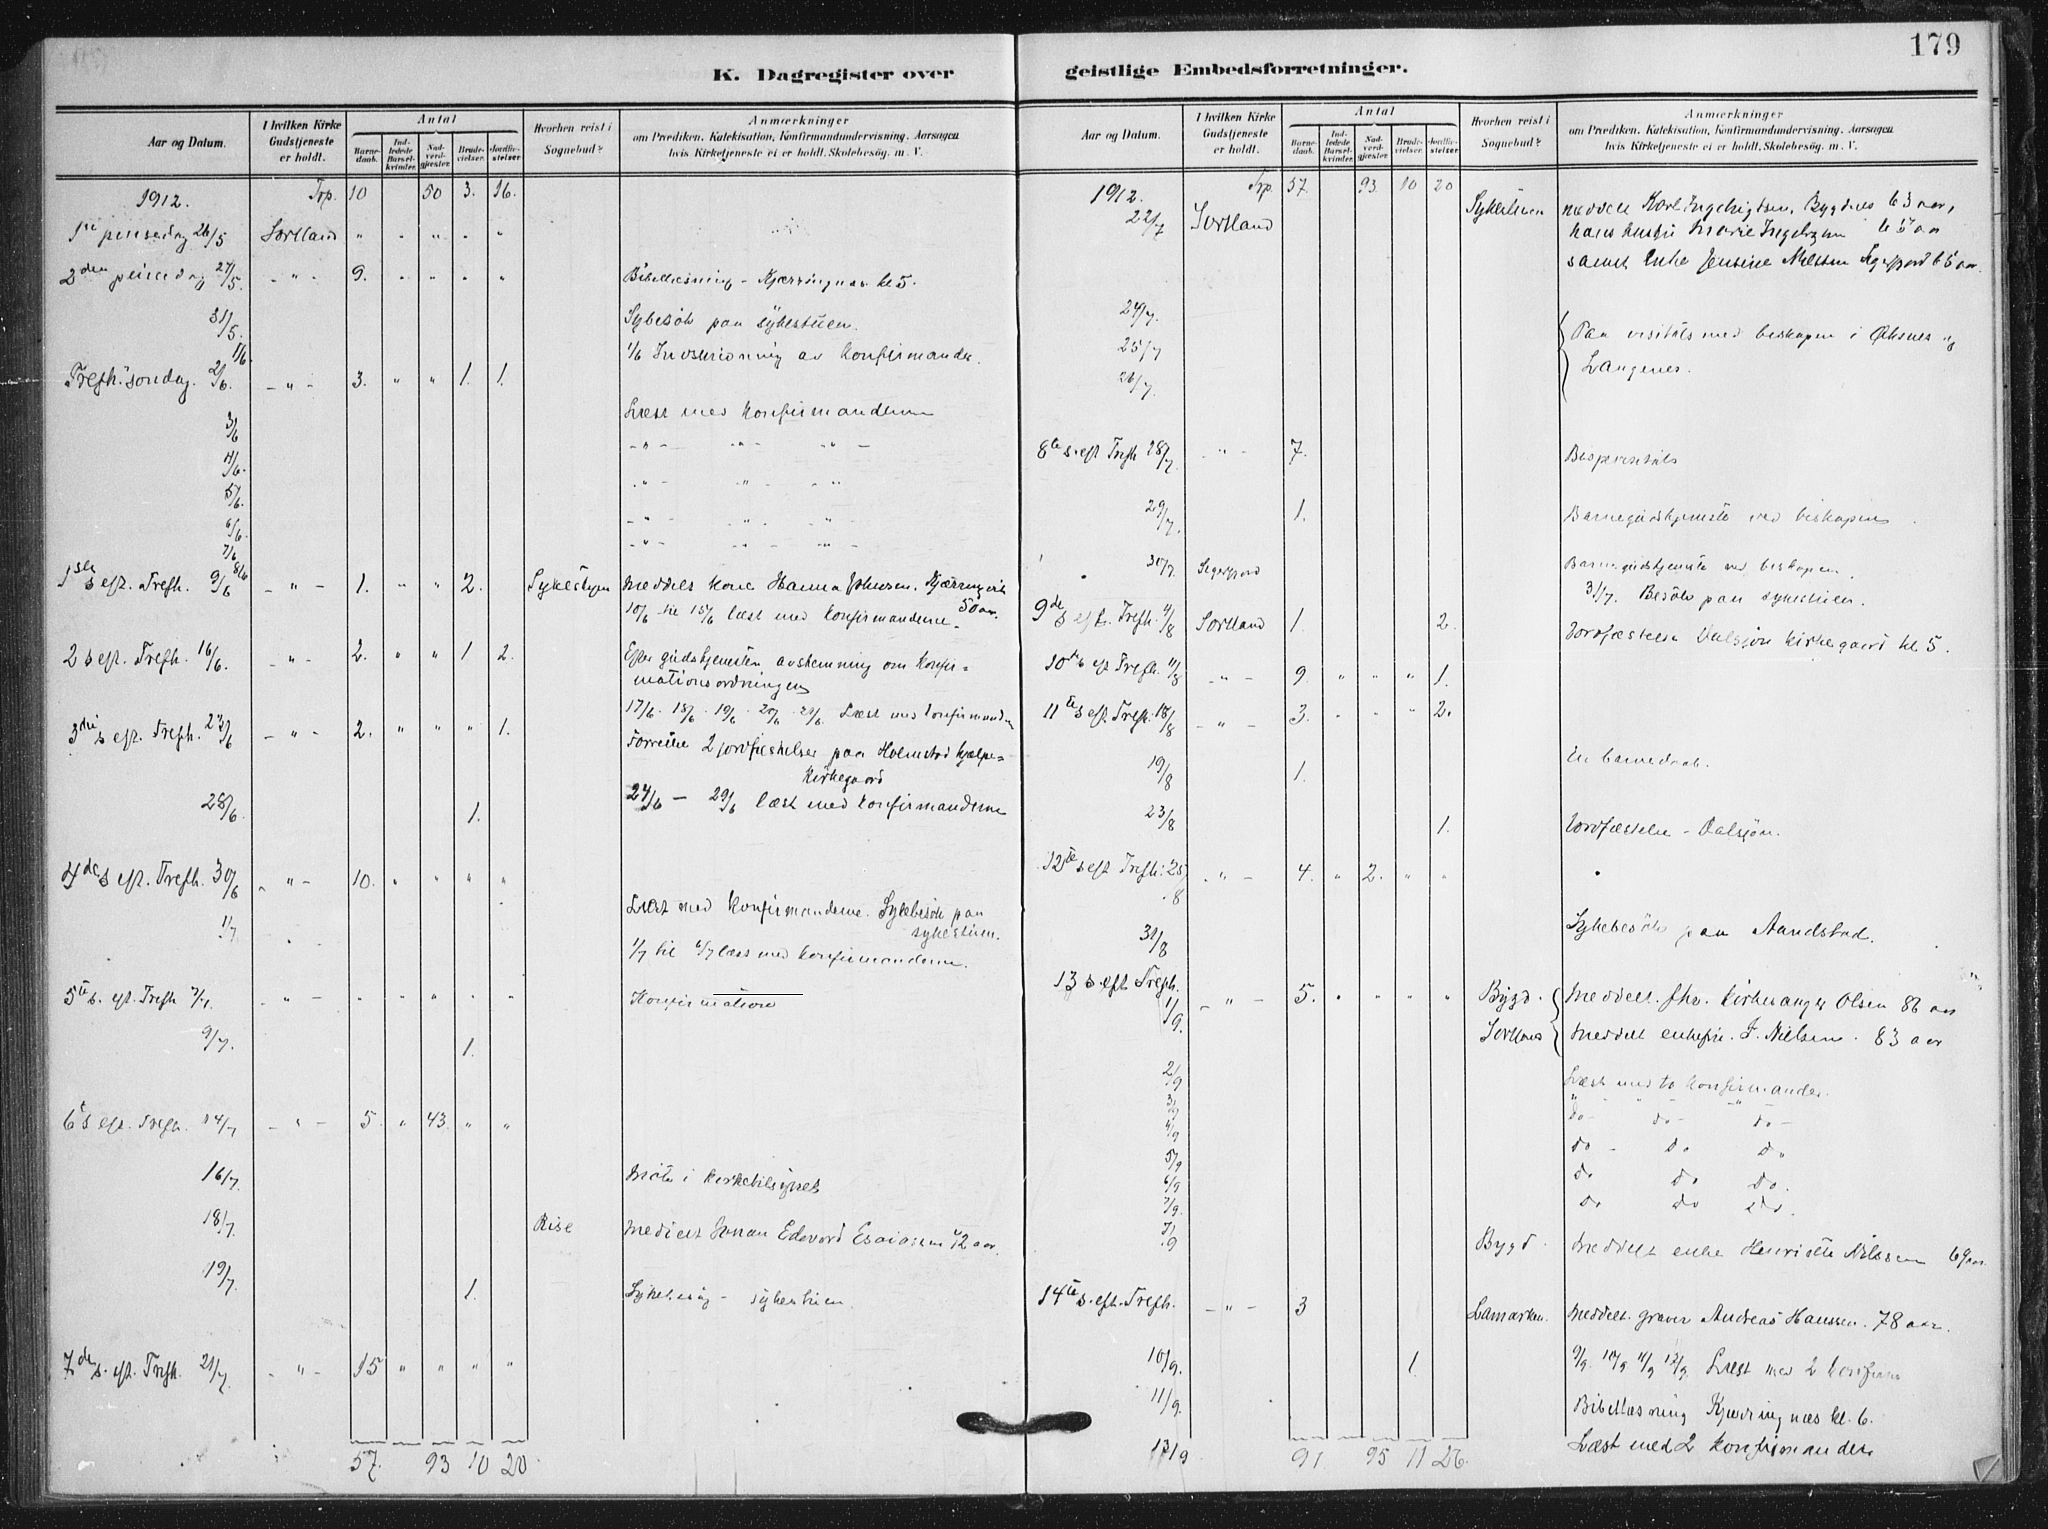 179
K. Dagregister over
Aar og Datum.
I hvilken Kirke Gudstjeneste er holdt.
Antal
Barnedaab.
Indledede Barselkvinder.
Nadverdgjæster.
Brudevielser.
Jordfæstelser
Hvorhen reist i Sognebud?
Anmærkninger
om Prædiken, Katekisation, Konfirmandundervisning, Aarsagen
hvis Kirketjeneste ei er holdt, Skolebesøg m. V.
1912. Trp. 10 50 3. 16.
pinsedag 26/5 Sortland " " " " "
2den pinsedag 27/5. - " - 9. " " " " Bibellæsning - Kjærringnes kl 5.
31/5. Sykebesøk paa sykestuen.
1/6 1/6 Indskrivning av konfirmander.
Trefh. søndag. 2/6. - " - 3. " " 1. 1.
Læst med konfirmanderne
3/6 - " - - " - - " -
4/6. - " - - " - - " -
5/6. - " - - " - - " -
6/6. - " - - " - - " -
7/6 8/6
1ste s eft. Trefh. 9/6 - " - 1. " " 2. Sykestuen Meddelt kone Hanna Johnsen, Kjærringnes 50 aar.
10/6 til 15/6 læst med konfirmanderne.
2 s eft. Trefh. 16/6. - " - 2. " " 1 2. Efter gudstjenesten avstemning om konfir-
mationsordningen
17/6 . 18/6 . 19/6 . 20/6 . 21/6. Læst med konfirmanderne
3die s eft. Trefh. 23/6 - " - 2. " " " 1.
Forrettet 2 jordfæstelser paa Holmstad hjælpe-
kirkegaard
24/6 - 29/6 læst med konfirmanderne
28/6. 1.
4de s eft. Trefh. 30/6 - " - 10. " " " "
1/7 Læst med konfirmanderne. Sykebesøk paa
sykestuen.
1/7 til 6/7 læst med konfirmanderne.
5te s. eft. Trefh 7/7. - " - " " " " " Konfirmation
9/7. 1.
6te s eft. Trefh. 14/7 - " - 5. " 43. " "
16/7 Møte i kirketilsynet
18/7 Rise Meddelt Johan Edvard Esaiassen 72 aar.
19/7 1. Sykebesøg - sykestuen.
7de s. eft. Trefh. 21/7 - " - 15 " " " "
57. 93 10 20
geistlige Embedsforretninger.
Aar og Datum.
I hvilken Kirke Gudstjeneste er holdt.
Antal
Barnedaab.
Indledede Barselkvinder.
Nadverdgjæster.
Brudevielser.
Jordfæstelser.
Hvorhen reist i Sognebud?
Anmærkninger
om Prædiken, Katekisation, Konfirmandundervisning, Aarsagen
hvis Kirketjeneste ei er holdt, Skolebesøg m. V.
1912. Trp. 57. 93 10 20
22/7 Sortland Sykestuen Meddelt Karl Ingebrigtsen, Bygdnes 63 aar,
hans hustru Marie Ingebrigtsen 65 aar
samt enke Jensine Nielsen Sigerfjord 65 aar.
24/7.
25/7 Paa visitats med biskopen i Øksnes og
Langenes.
26/7.
8de s. eft Trefh 28/7. - " - 7. Bispevisitats
29/7. 1. Barnegudstjeneste ved biskopen.
30/7. Sigerfjord Barnegudstjeneste ved biskopen.
31/7. Besøk paa sykestuen.
9de s eft. Trefh. 4/8 Sortland 1. 2. Jordfæstelse Valsjøn kirkegaard kl 5.
10de s eft Trefh. 11/8 - " - 9. " " " 1.
11te s eft. Trefh. 18/8 - " - 3. " " " 2.
19/8 1. En barnedaab.
23/8 1. Jordfæstelse - Valsjøn.
12te s eft Trefh: 25/8 - " - 4. " 2. " "
31/8 Sykebesøk paa Aandstad.
13 s eft Trefh. 1/9. - " - 5. " " " " Bygd. Meddelt fhv. kirkesanger Olsen 86 aar
Sortland Meddelt enkefru J. Nielsen. 83 aar
2/9 Læst med to konfirmander.
3/9 Do - do - Do -
4/9 Do - Do Do
5/9 Do Do Do.
6/9 Do Do Do.
7/9.
7/9 Bygd. Meddelt enke Henriette Nilssen 69 aar.
14te s. eft. Trefh. - " - 3 Lamarken. Meddelt graver Andreas Hanssen. 78 aar.
10/9. 1 9/9 10/9 11/9 12/9 Læst med 2 konfirm
11/9. Bibellæsning Kjærringnes kl. 6.
13/9 Læst med 2 konfirmander
91. 95 11 26.